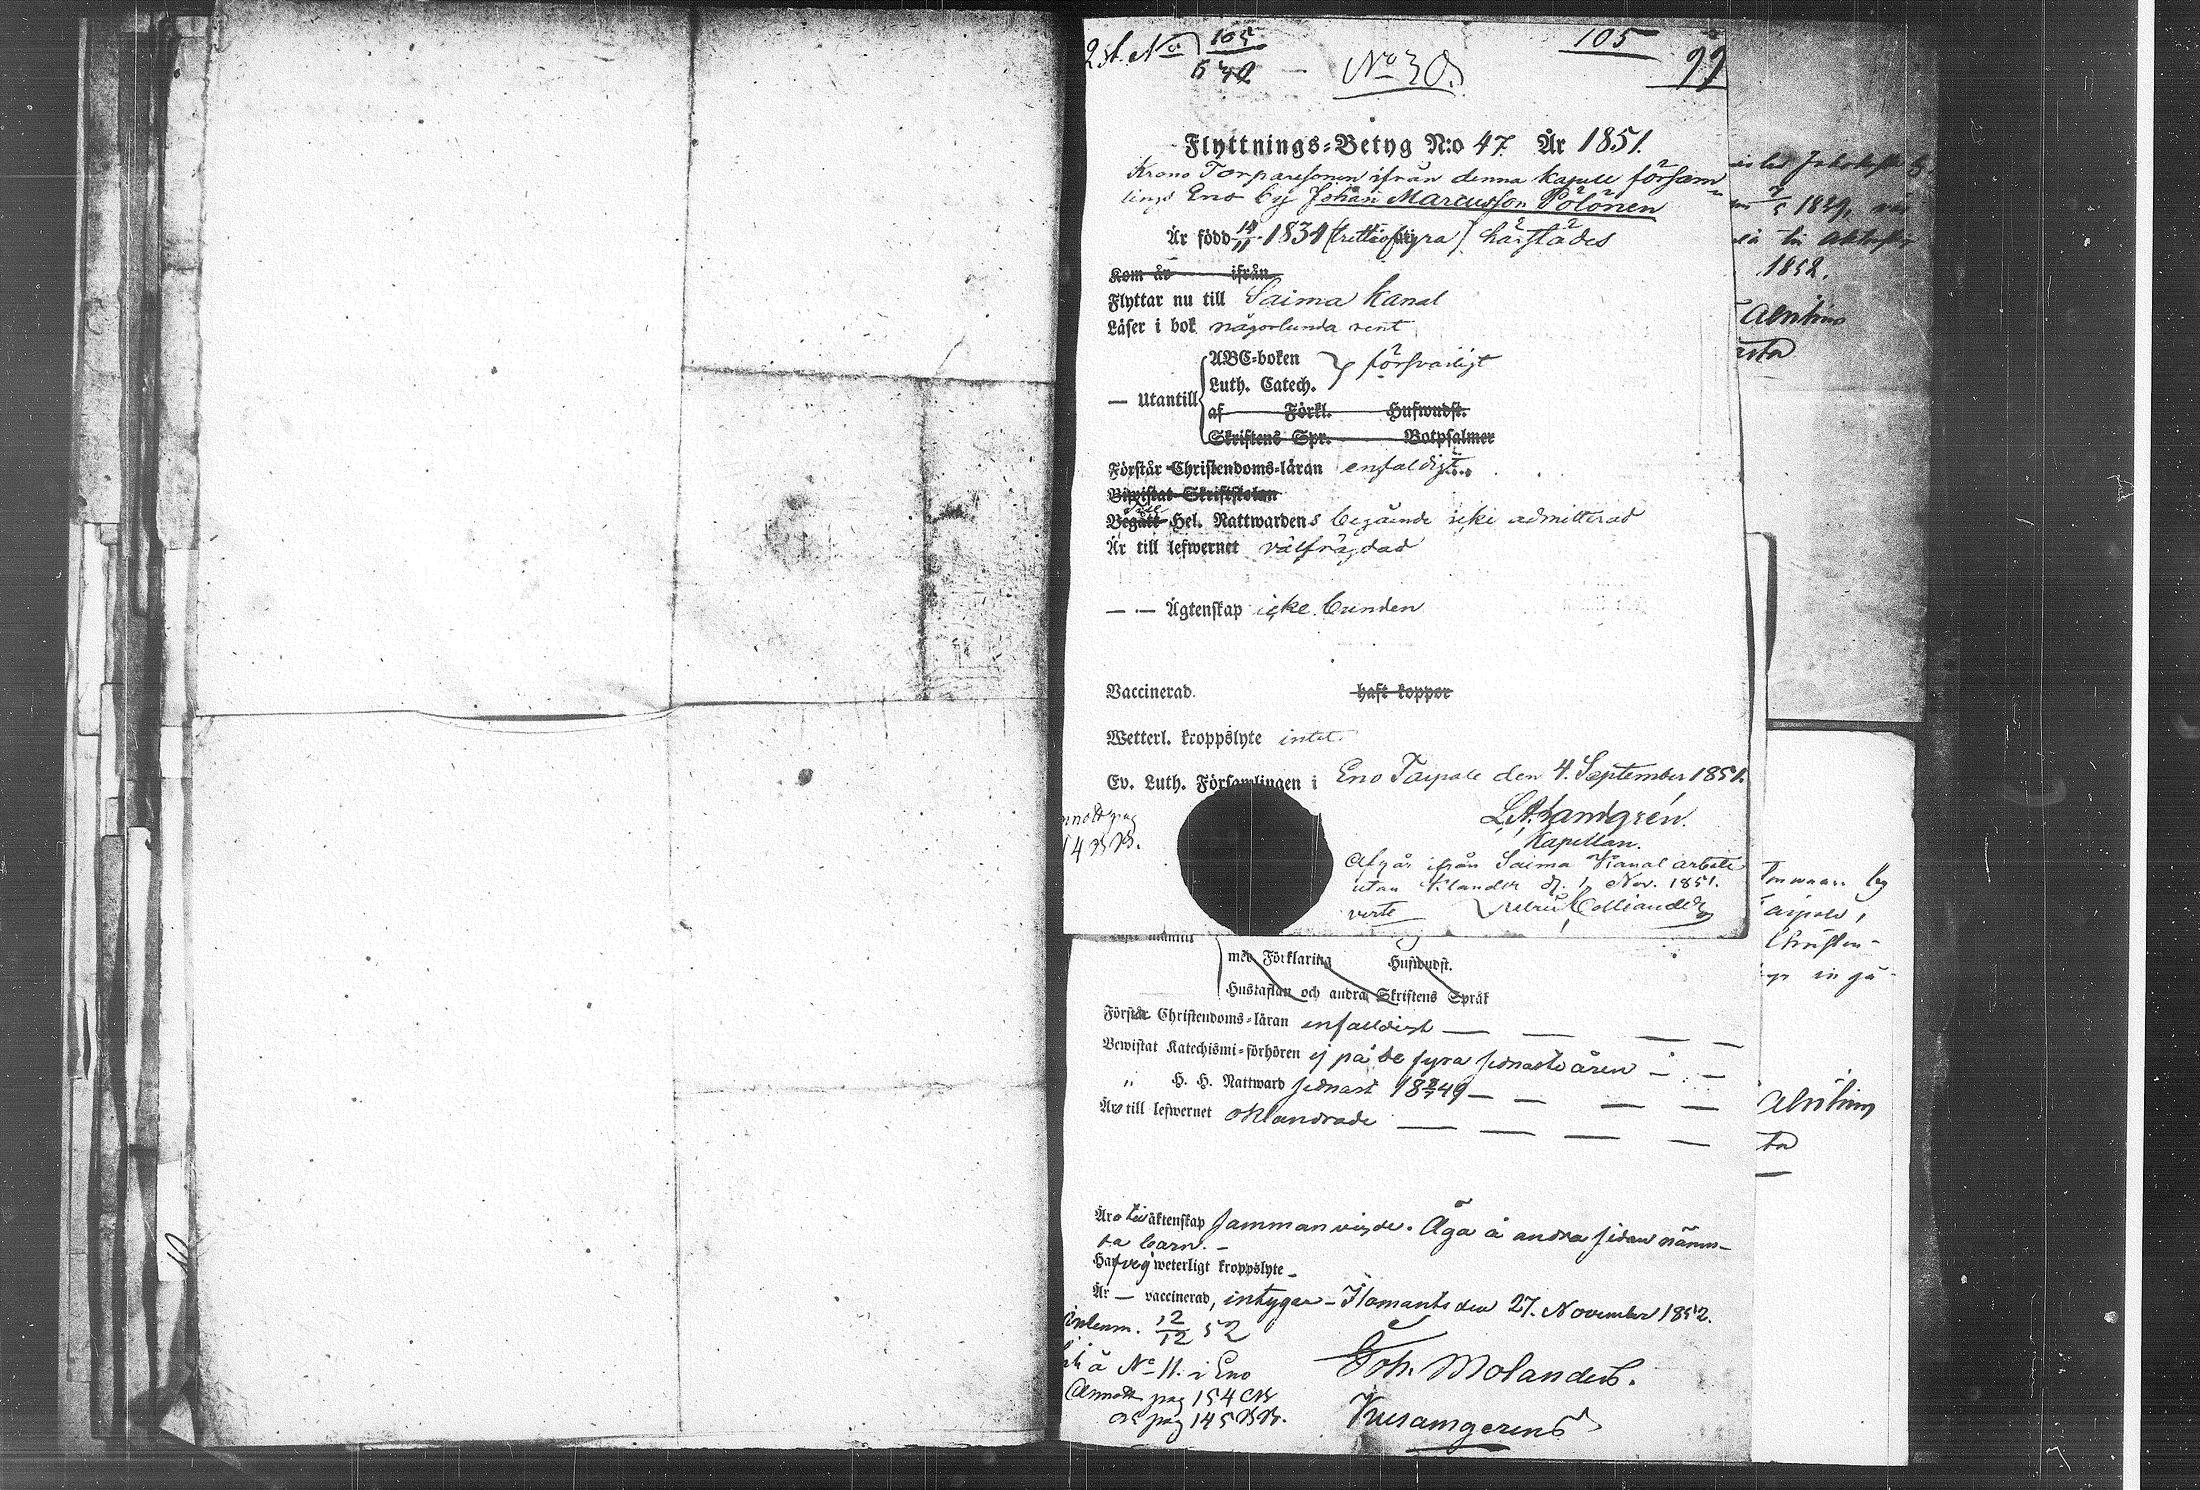 2 st. No 105
No 30.
105
99
Flyttnings-Betyg N:o 47. År 1851.
Krono Torparesonen ifrån denna kapell försam-
lings Eno by Johan Marcusson Polönen
Är född 14/11 1834 (trettiofyra) härstädes
Kom år ifrån
Flyttar nu till Saima Kanal
Läser i bok någorlunda rent
ABC-boken
Luth. Catech. försvarligt
— Utantill
af Förkl. Huswudst.
Skriftens Spr. Botpsalmer
Förstår Christendoms-läran enfaldigt
Biwistat Skriftskolan
Begått Hel. Nattwardens begående icke admitterad
Är till lefwernet välfrägdad
— — Ägtenskap icke bunden
Vaccinerad. haft koppor
Wetterl. kroppslyte intet
Ev. Luth. Församlingen i Eno Taipale den 4. September 1851.
L. A. Landgrén.
Kapellan.
Afgår ifrån Saima Kanal arbete
utan klander d. 1 Nov. 1851.
verte Colliander
med Förklaring Huswudst.
Hustaflan och andra Skriftens Språk
Förstår Christendoms-läran enfaldigt
Bewistat Katechismi-förhören ej på de fyra sednaste åren
" H. H. Nattward sednast 1849
Äro till lefwernet oklandrade
Äro till äktenskap sammanvigde. Äga å andra sidan nämn-
da barn. —
Haf ej weterligt kroppslyte
Är — vaccinerad, intygar — Ilomants den 27. November 1852.
12/12 52
å No 11. i Eno
Annott pag 154 CB
pag 145 BB.
Joh. Molander.
1829,
1852.